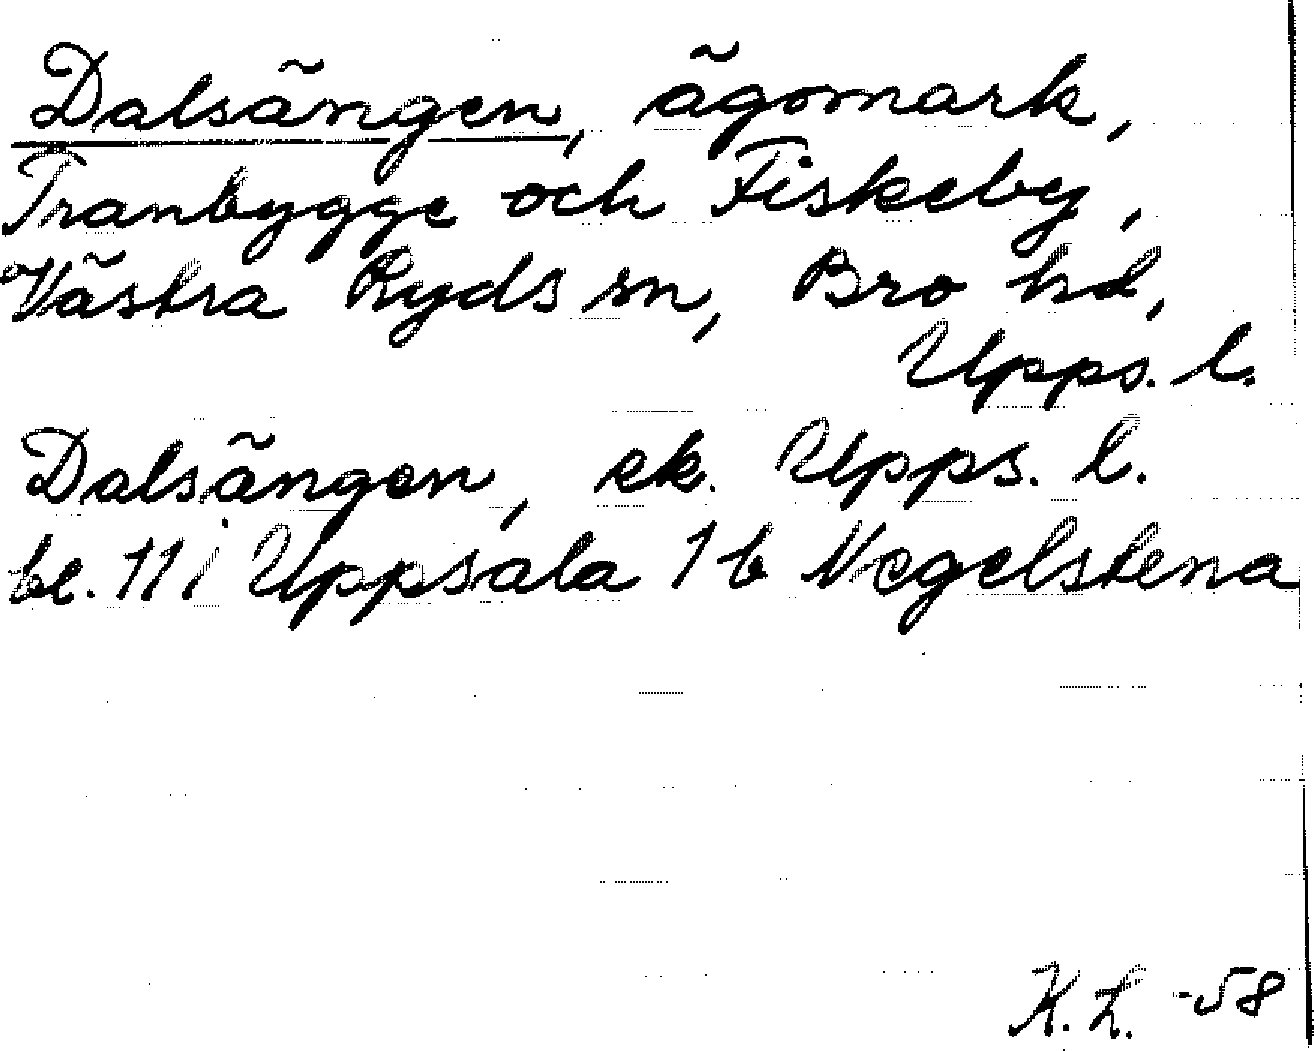 Dalsängen, ägomark,
Tranbygge och Fiskeby,
Västra Ryds sn, Bro hd,
Upps. l.
Dalsängen, ek. Upps. l.
bl. 11 i Uppsala 1 b Negelstena
K. L. -58